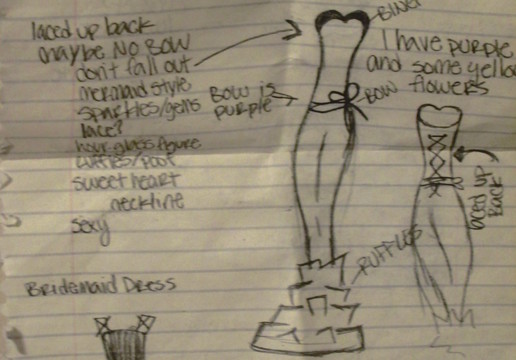 laced up back
maybe NO BOW
don't fall out
mermaid style
sparkles/gems
lace?
hour glass figure
ruffles/poof
sweet heart
neckline
sexy
BOW is
purple
I have purple
and some yellow
flowers
BOW
laced up
back
RUFFLES
BRIDEMAID DRESS